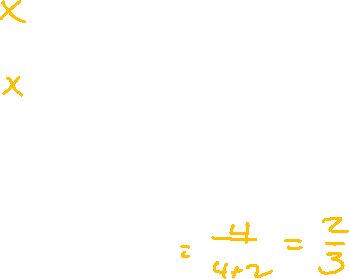 x
x
= 4/(4+2) = 2/3